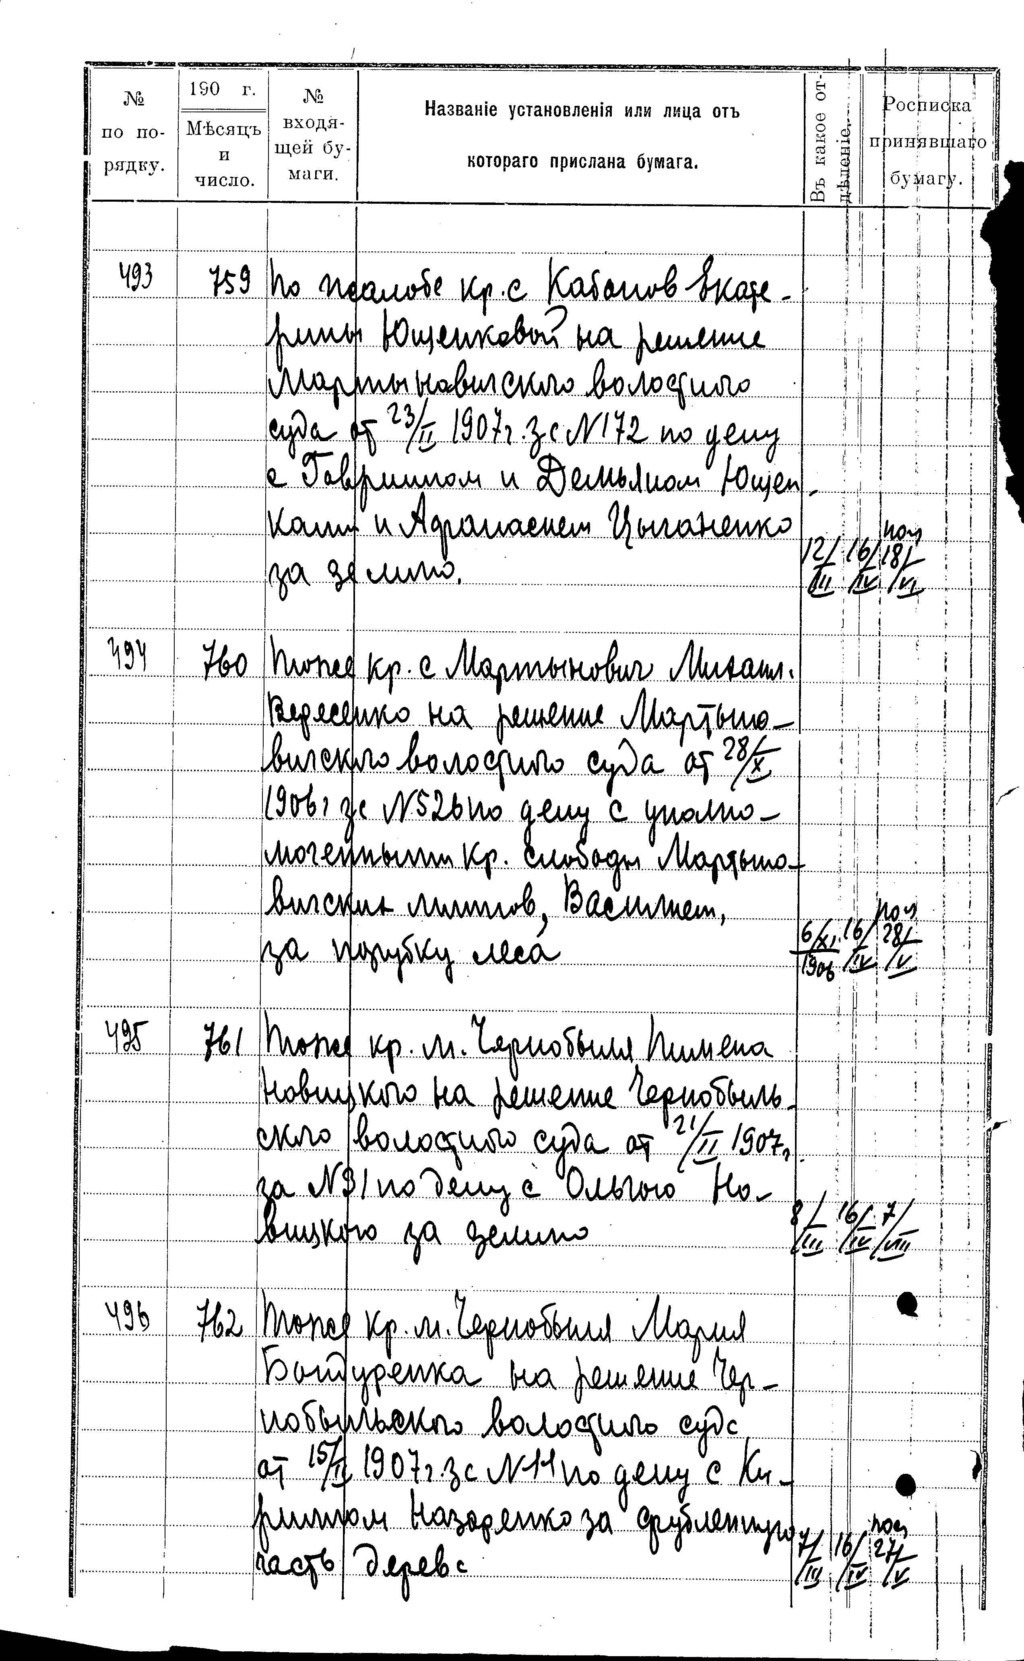 № по порядку.
190 г. Мѣсяцъ и число.
№ входящей бумаги.
Названіе установленія или лица отъ котораго прислана бумага.
Въ какое отдѣленіе.
Росписка принявшаго бумагу.
493 759 По жалобе кр. с Кабанов Екате-
рины Ющенковой на решение
Мартыновичского волостного
суда от 23/II 1907 г. за N 172 по делу
с Гавриилом и Демьяном Ющен-
ками и Афанасием Цыганенко
за землю.
12/III 16/IV 18/VI
494 760 Тоже кр. с Мартынович Михаил.
Вересенко на решение Мартыно-
вичского волостного суда от 28/X
1906 г за N 526 по делу с уполно-
моченными кр. слободы Мартыно-
вичских Василием,
за порубку леса
6/XI 1906 16/IV 28/V
495 761 Тоже кр. м. Чернобыля Пимена
Новицкого на решение Чернобыль-
ского волостного суда от 21/II 1907 г.
за N 31 по делу с Ольгою Но-
вицкою за землю
8/III 16/IV 7/VIII
496 762 Тоже кр. м. Чернобыля Мария
Бондуренка на решение Чер-
нобыльского волостного суда
от 15/II 1907 г. за N 11 по делу с Ки-
риллом Назаренко за срубленную
часть дерева
7/III 16/IV 27/V